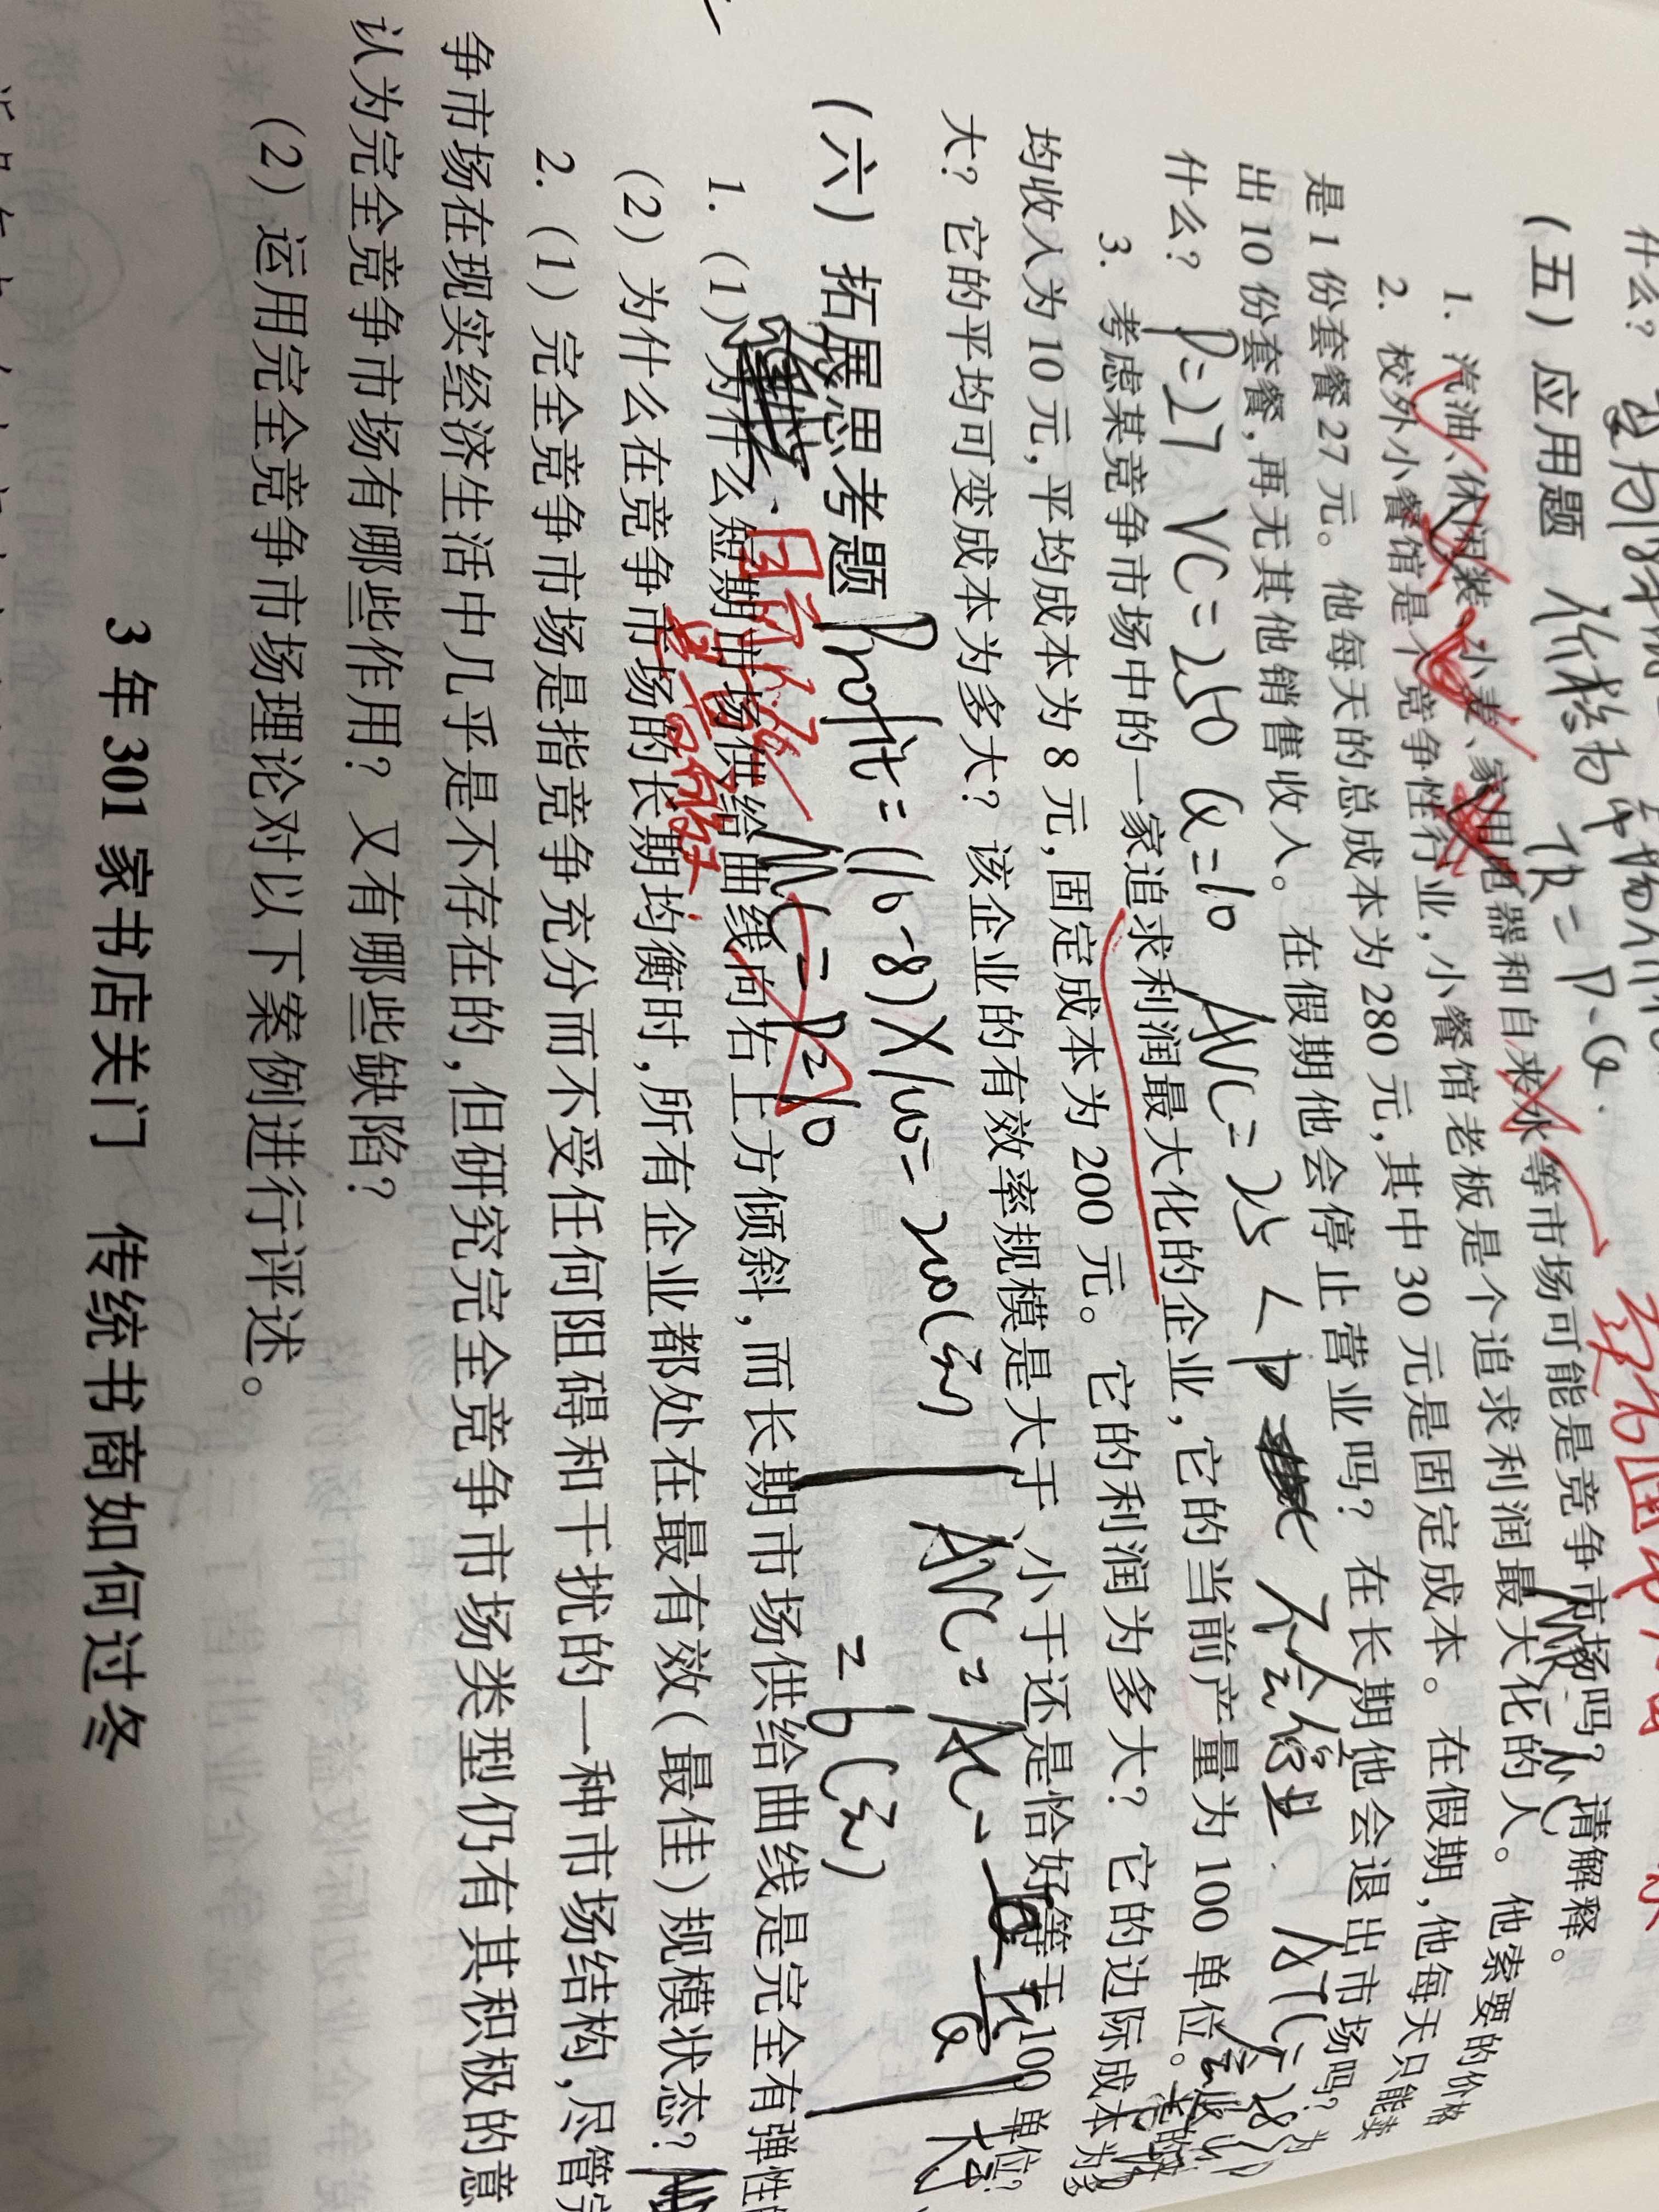 什么?
(五) 应用题
TR = P·Q
1. 汽油、休闲装、小麦、家用电器和自来水等市场可能是竞争市场吗? 请解释。
2. 校外小餐馆是个竞争性行业,小餐馆老板是个追求利润最大化的人。他索要的价格
是 1 份套餐 27 元。他每天的总成本为 280 元,其中 30 元是固定成本。在假期,他每天只能卖
出 10 份套餐,再无其他销售收入。在假期他会停止营业吗? 在长期他会退出市场吗? 为
什么?
P=27 VC=250 Q=10 AVC=25 < P 不会停业. ATC=28
3. 考虑某竞争市场中的一家追求利润最大化的企业,它的当前产量为 100 单位。
均收入为 10 元,平均成本为 8 元,固定成本为 200 元。它的利润为多大? 它的边际成本为多
大? 它的平均可变成本为多大? 该企业的有效率规模是大于、小于还是恰好等于 100 单位?
Profit = (10-8)×100 = 200(元)
MC = P = 10
= 6(元)
(六) 拓展思考题
1. (1) 为什么短期市场供给曲线向右上方倾斜,而长期市场供给曲线是完全有弹性的
(2) 为什么在竞争市场的长期均衡时,所有企业都处在最有效(最佳)规模状态?
2. (1) 完全竞争市场是指竞争充分而不受任何阻碍和干扰的一种市场结构,尽管完
争市场在现实经济生活中几乎是不存在的,但研究完全竞争市场类型仍有其积极的意
认为完全竞争市场有哪些作用? 又有哪些缺陷?
(2) 运用完全竞争市场理论对以下案例进行评述。
3 年 301 家书店关门 传统书商如何过冬